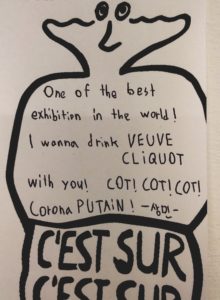 One of the best
exhibition in the world!
I wanna drink VEUVE
CLiQUOT
with you! COT! COT! COT!
Corona PUTAiN! -상미-
C'EST SUR
C'EST SUR